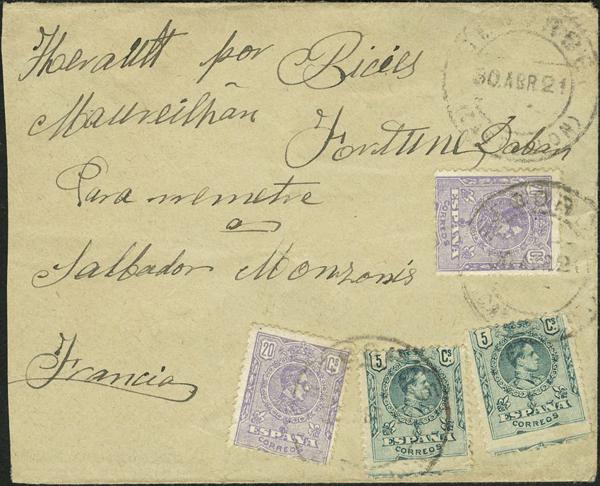 Herault por Bicies
Maureilhán
Fortune Daban
Para
a
Salbador Monzonis
Francia
30.ABR.21
20 Cs
ESPAÑA
CORREOS
20 Cs
ESPAÑA
CORREOS
5 Cs
ESPAÑA
CORREOS
5 Cs
ESPAÑA
CORREOS